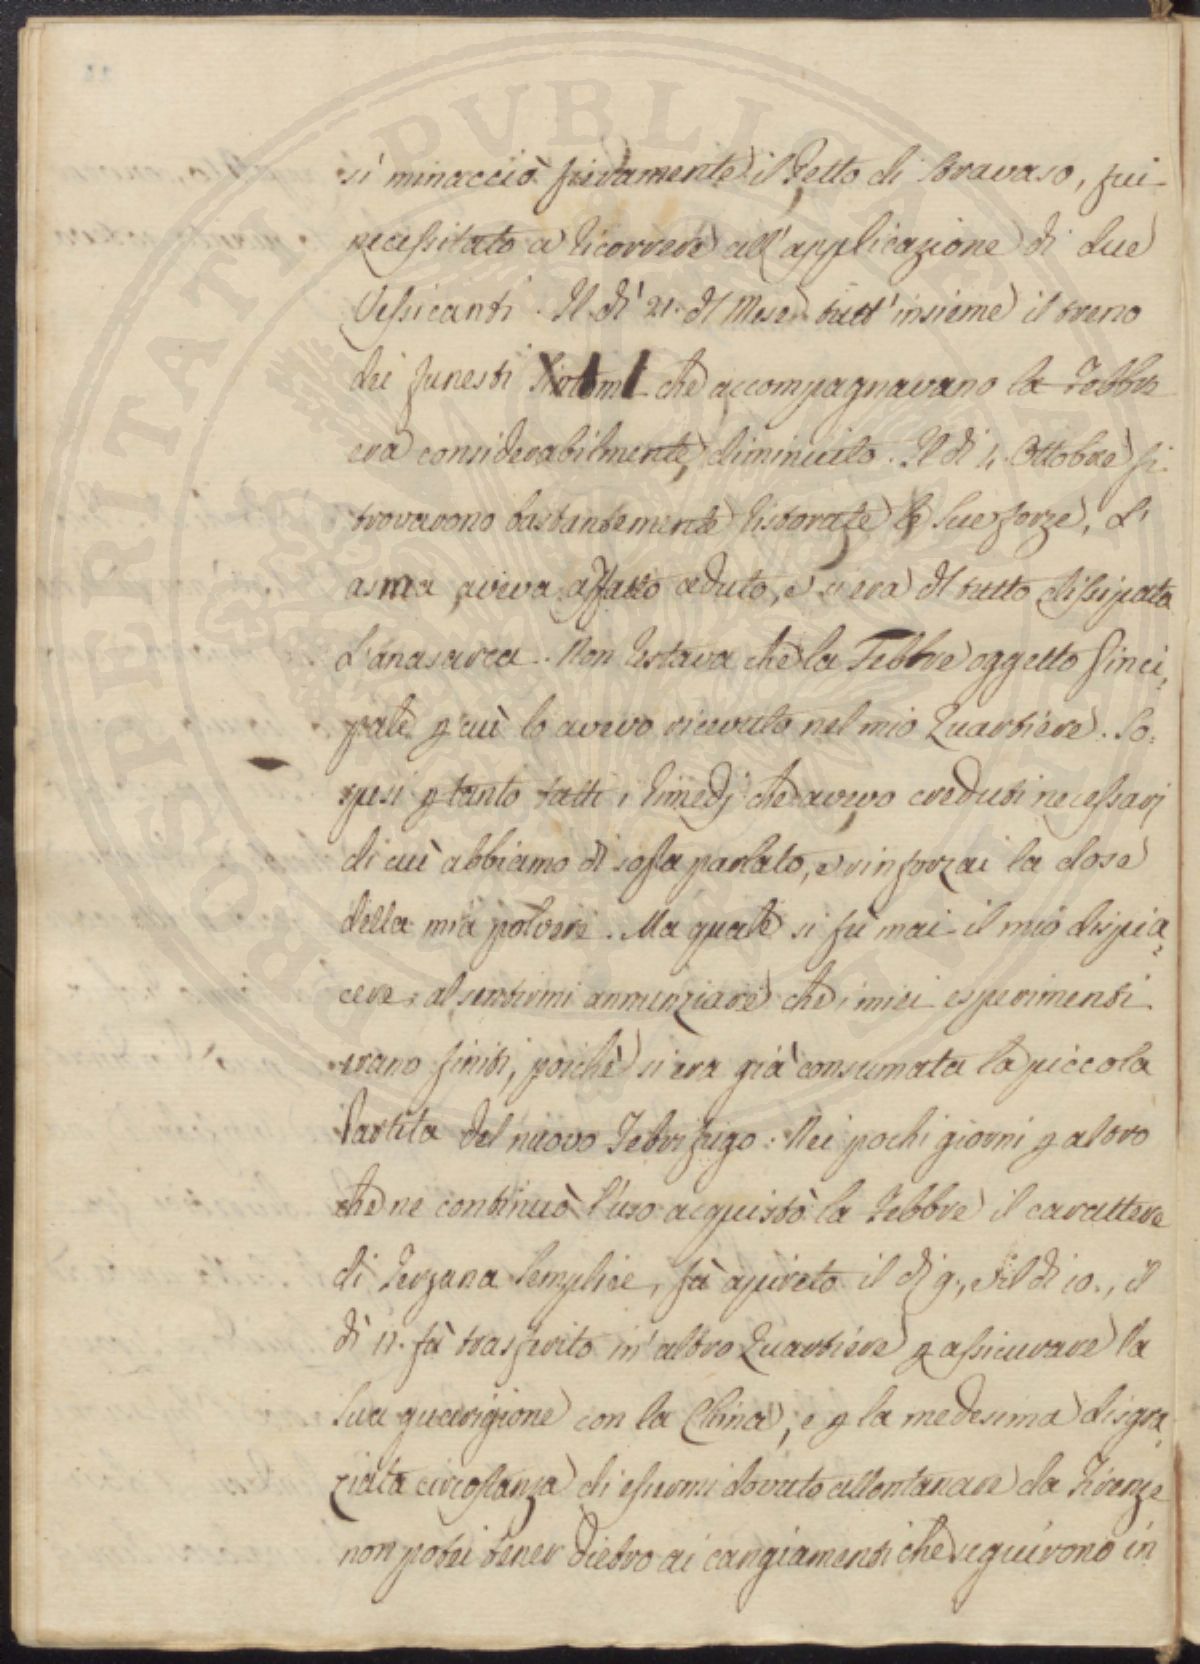 si minacciò fieramente il Petto di Bravaso, fui
necessitato a ricorrere all'applicazione di due
Vessicanti. Il dì 21. dl Mese tutt'insieme il treno
dei funesti Sintomi che accompagnavano la Febbre
era considerabilmente diminuito. Il dì 4. Ottobre si
trovarono bastantemente ristorate le Sue forze, L'
asma aveva affatto ceduto, e si era dl tutto dissipata
L'anasarca. Non restava che la Febbre oggetto Princi=
pale p cui lo avevo ricevuto nel mio Quartiere. So=
spesi p tanto tutti i rimedj che avevo creduti necessarj
di cui abbiamo di sopra parlato, e rinforzai la dose
della mia polvere. Ma quale si fù mai il mio dispia=
cere, al sentirmi annunziare che i miei esperimenti
erano finiti, poichè si era già consumata la piccola
Partita del nuovo Febrifugo. Nei pochi giorni p altro
che ne continuò l'uso acquistò la Febbre il carattere
di Terzana Semplice, fù apireto il dì 9., e il dì 10., il
dì 11. fù trasferito in altro Quartiere p assicurare la
Sua guarigione con la China, e p la medesima disgra=
ziata circostanza di essermi dovuto allontanare da Firenze
non potei tener dietro ai cangiamenti che seguirono in
PROSPERITATI PVBLICAE